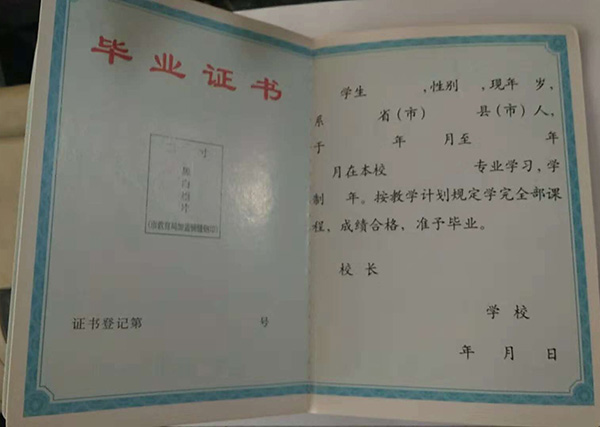 毕业证书
寸
黑白相片
证书登记第 号
学生 ,性别 ,现年 岁,
系 省(市) 县(市)人,
于 年 月至 年
月在本校 专业学习,学
制 年。按教学计划规定学完全部课
程,成绩合格,准予毕业。
校长
学校
年 月 日